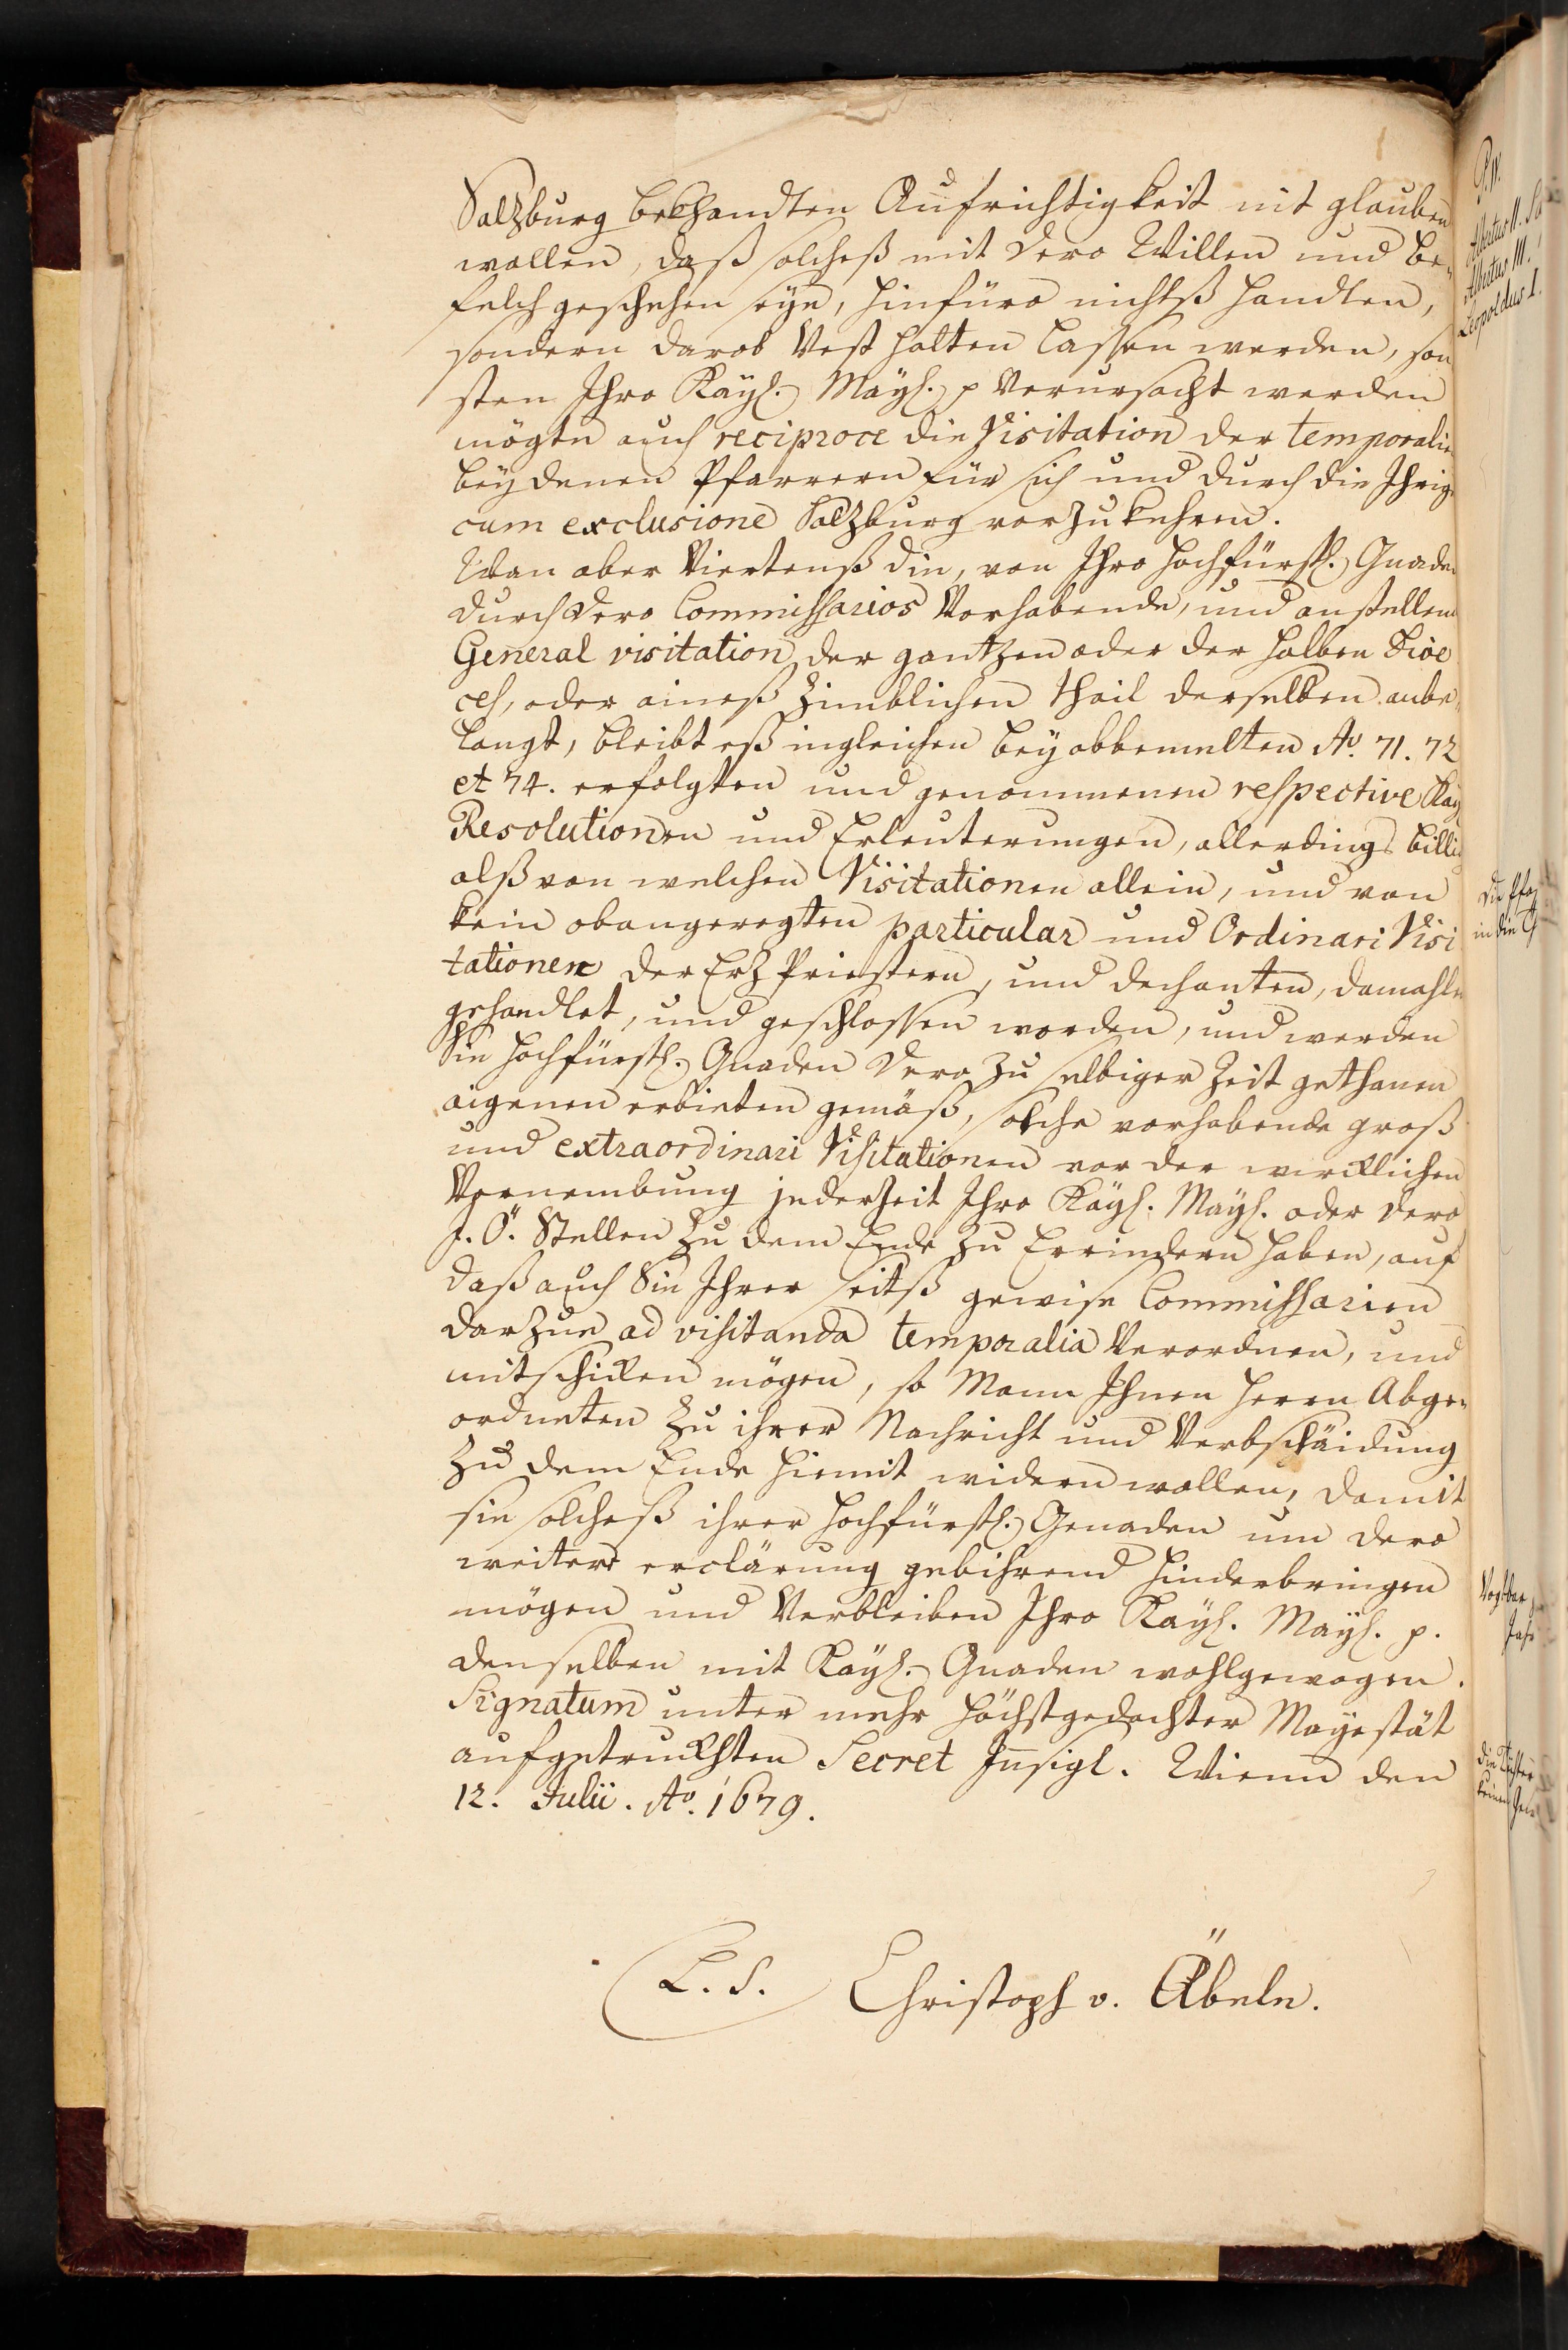 Salzburg bekhandten Aufrichtigkeit nit glauben
wollen, daß solcheß mit dero Willen und be-
felch geschehen seye, hinfüro nichtß handlen,
sondern darob Vest halten lassen werden, son
sten Ihro Kayl. Mayl. p verursacht werden
mögte auch reciproce die Visitation der temporalie
bey denen Pfarrern für sich und durch die Ihrige
cum exclusione Salzburg vorzukehren.
Wan aber Viertenß die, von Ihro hochfürstl. Gnaden
durch dero Commissarios Vorhabende, und anstellen
General visitation der gantzen oder der halben Dioe
ces, oder aineß zimblichen thail derselben anbe-
langt, bleibt eß ingleichen bey obbemelten Ao. 71. 72
et 74. erfolgten und genommenen respective Kay
Resolutionen und Erleuterungen, allerdings billig
alß von welchen Visitationen allein, und von
kein obangeregten particular und Ordinari Visi
tationen der Erz Priestern, und dechanten, damahlen
gehandlet, und geschlossen worden, und werden
Sie hochfürstl. Gnaden dero zu selbiger Zeit gethanen
aigenen erbieten gemäß, solche vorhabende groß
und extraordinari Visitationen vor der wircklichen
Vornembung jederzeit Ihro Kayl. Mayl. oder dero
J. Ö. Stellen zu dem Ende zu Erindern haben, auf
daß auch Sie Ihrer seitß gewise Commissarien
darzue ad visitanda temporalia Verordnen, und
mitschicken mögen, so Mann Ihnen Herrn Abge-
ordneten zu ihrer Nachricht und Verbschaidung
zu dem Ende hiemit widern wollen, damit
sie solcheß ihrer hochfürstl. Genaden um dero
weitere erclärung gebihrend hinderbringen
mögen und Verbleiben Ihro Kayl. Mayl. p.
denselben mit Kayl. Gnaden wohlgewogen.
Signatum unter mehr höchstgedachter Mayestät
aufgetruckhten Secret Insigl. Wienn den
12. Julii. Ao. 1679.
L. S. Christoph v. Äbele.
Albertus II.
Albertus III.
Leopoldus I.